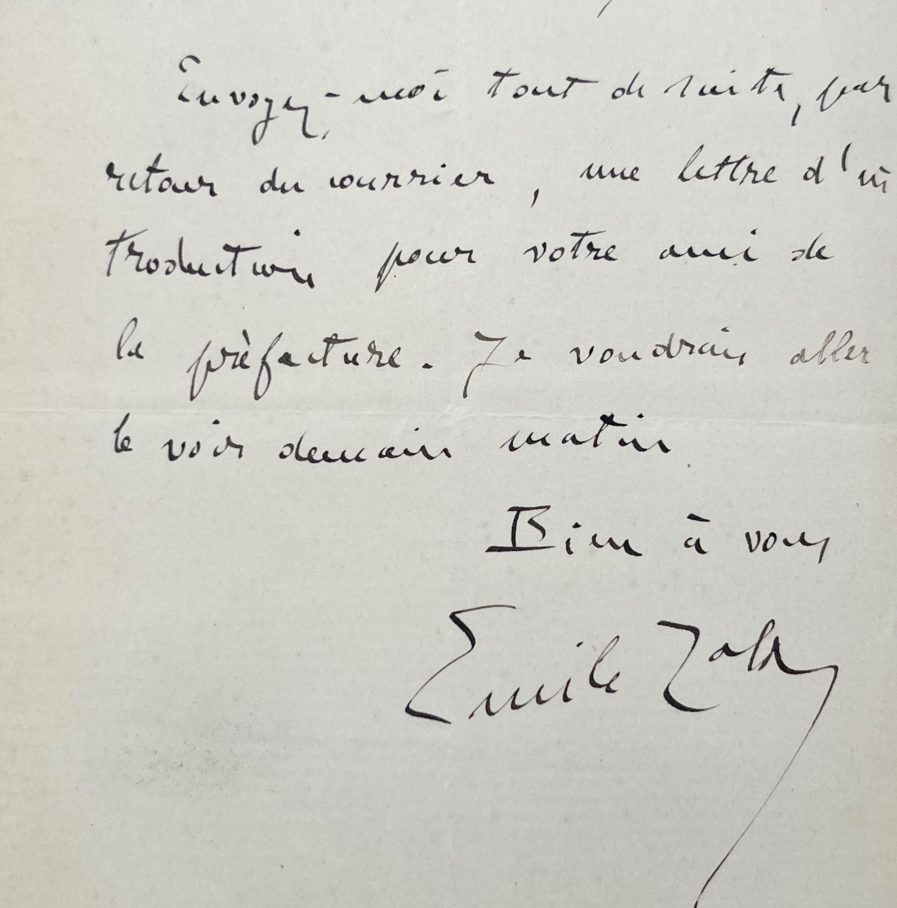 Envoyez-moi tout de suite, par
retour du courrier, une lettre d'in
troduction pour votre ami de
la préfecture. Je voudrais aller
le voir demain matin
Bien à vous
Emile Zola